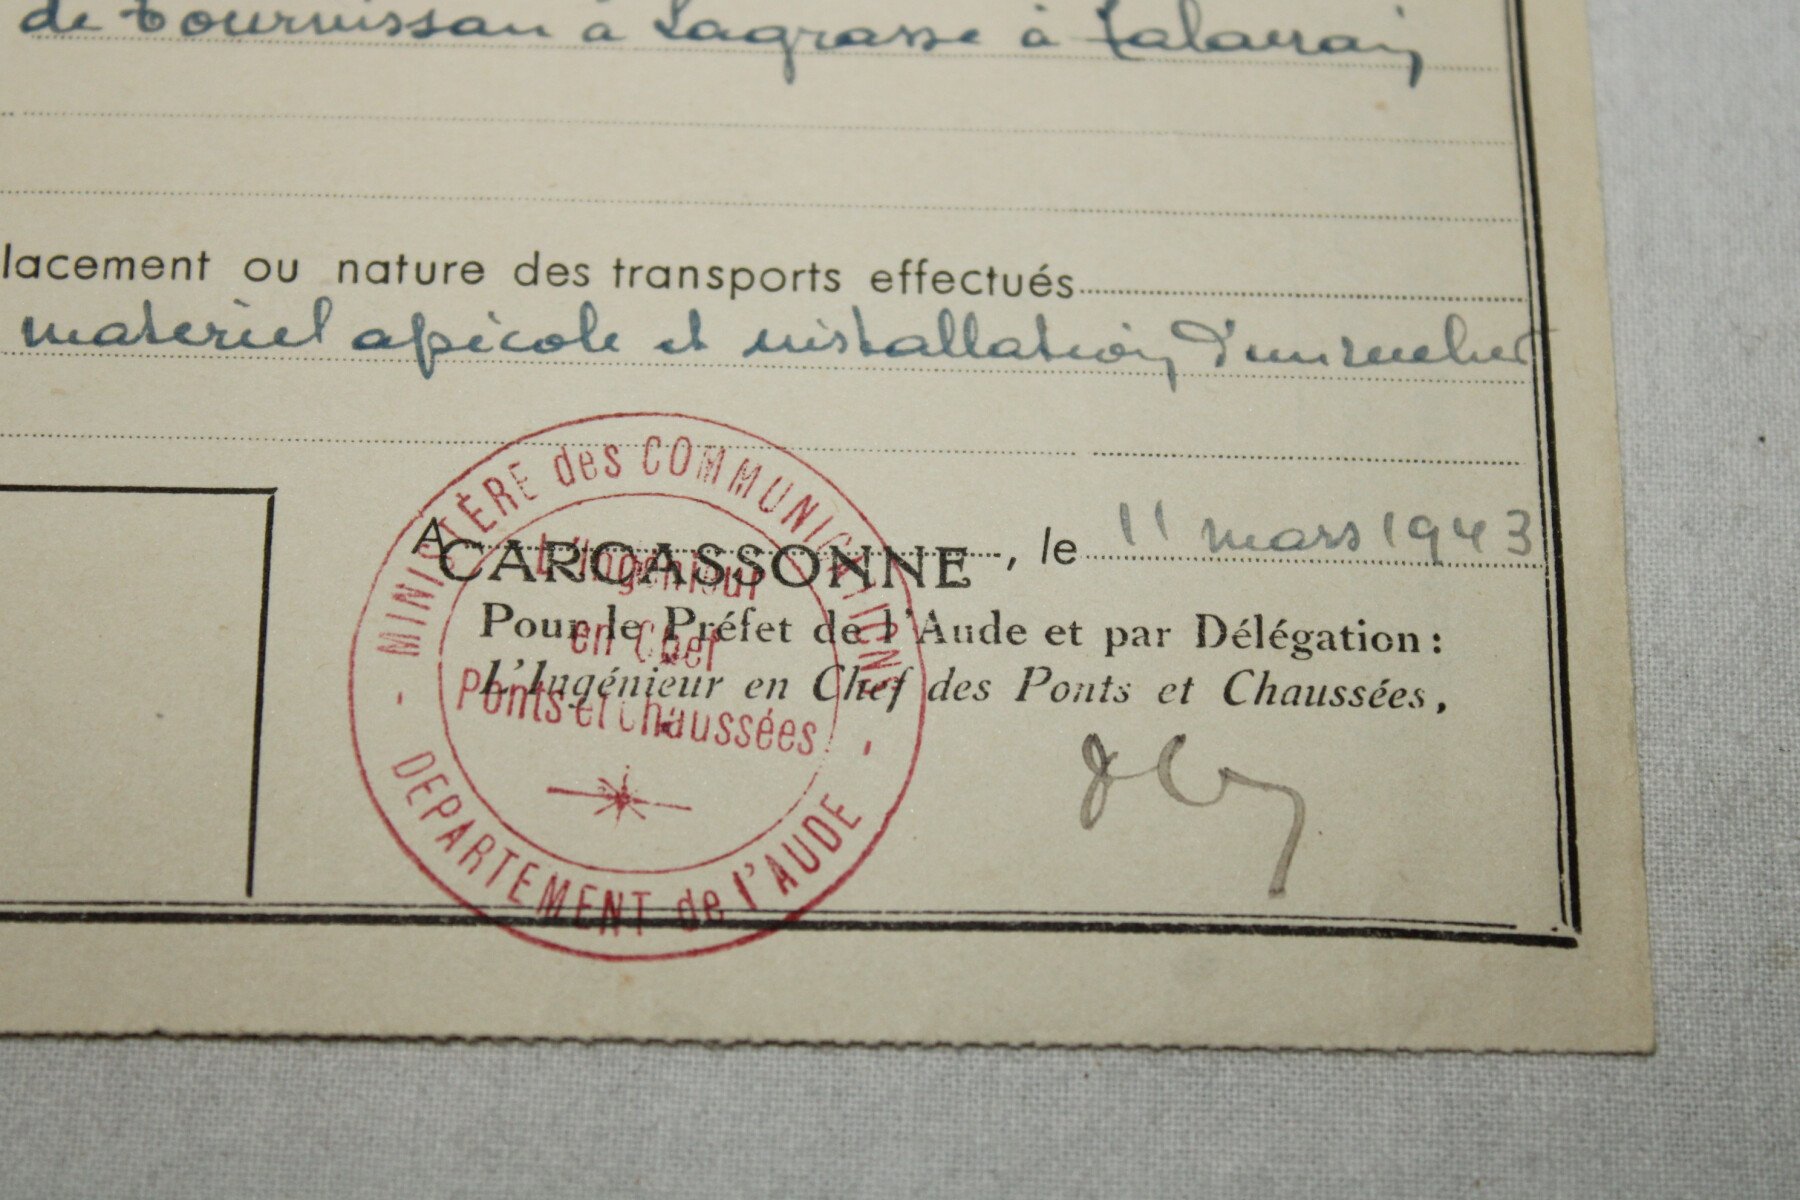 de Tournissan à Lagrasse à Talairan
lacement ou nature des transports effectués
materiel apicole et installation d'un rucher
A CARCASSONNE, le 11 mars 1943
Pour le Préfet de l'Aude et par Délégation :
L'Ingénieur en Chef des Ponts et Chaussées,
MINISTÈRE des COMMUNICATIONS
L'Ingénieur
en Chef
Ponts et Chaussées
DEPARTEMENT de l'AUDE